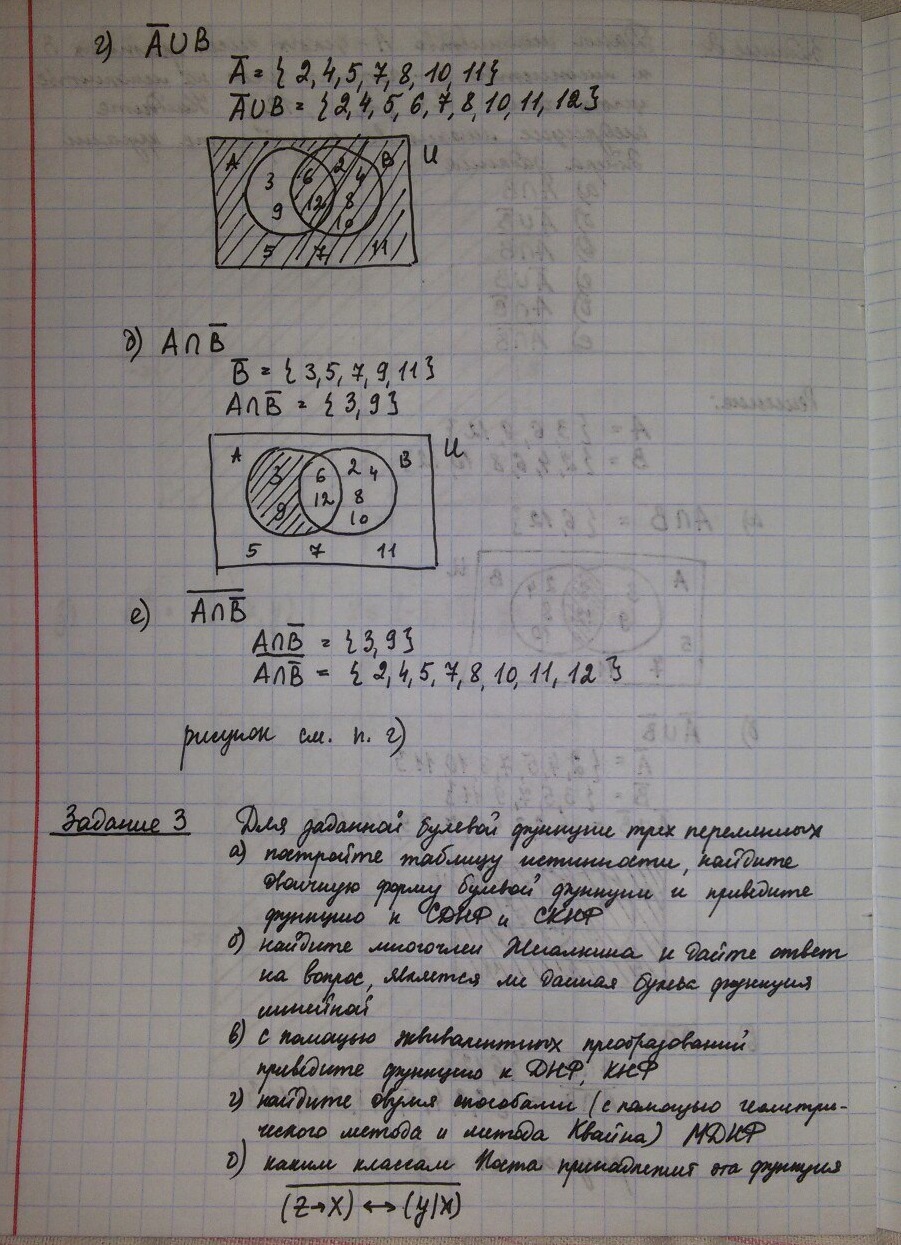 г) A̅∪B
A̅ = { 2,4,5, 7, 8, 10, 11}
A̅∪B = {2,4, 5, 6, 7, 8, 10, 11, 12}
A 3 6 2 4 B U
9 12 8
10
5 7 11
д) A∩B̅
B̅ = { 3,5, 7, 9, 11}
A∩B̅ = { 3, 9}
A 3 6 2 4 B U
9 12 8
10
5 7 11
е) \overline{A∩B̅}
A∩B̅ = {3, 9}
\overline{A∩B̅} = { 2, 4, 5, 7, 8, 10, 11, 12 }
рисунок см. п. г)
Задание 3 Для заданной булевой функции трех переменных
а) постройте таблицу истинности, найдите
двоичную форму булевой функции и приведите
функцию к СДНФ и СКНФ
б) найдите многочлен Жегалкина и дайте ответ
на вопрос, является ли данная функция
линейной
в) с помощью эквивалентных преобразований
приведите функцию к ДНФ, КНФ
г) найдите двумя способами (с помощью геометри-
ческого метода и метода Квайна) МДНФ
д) каким классам Поста принадлежит эта функция
\overline{(z→x) ↔ (y|x)}